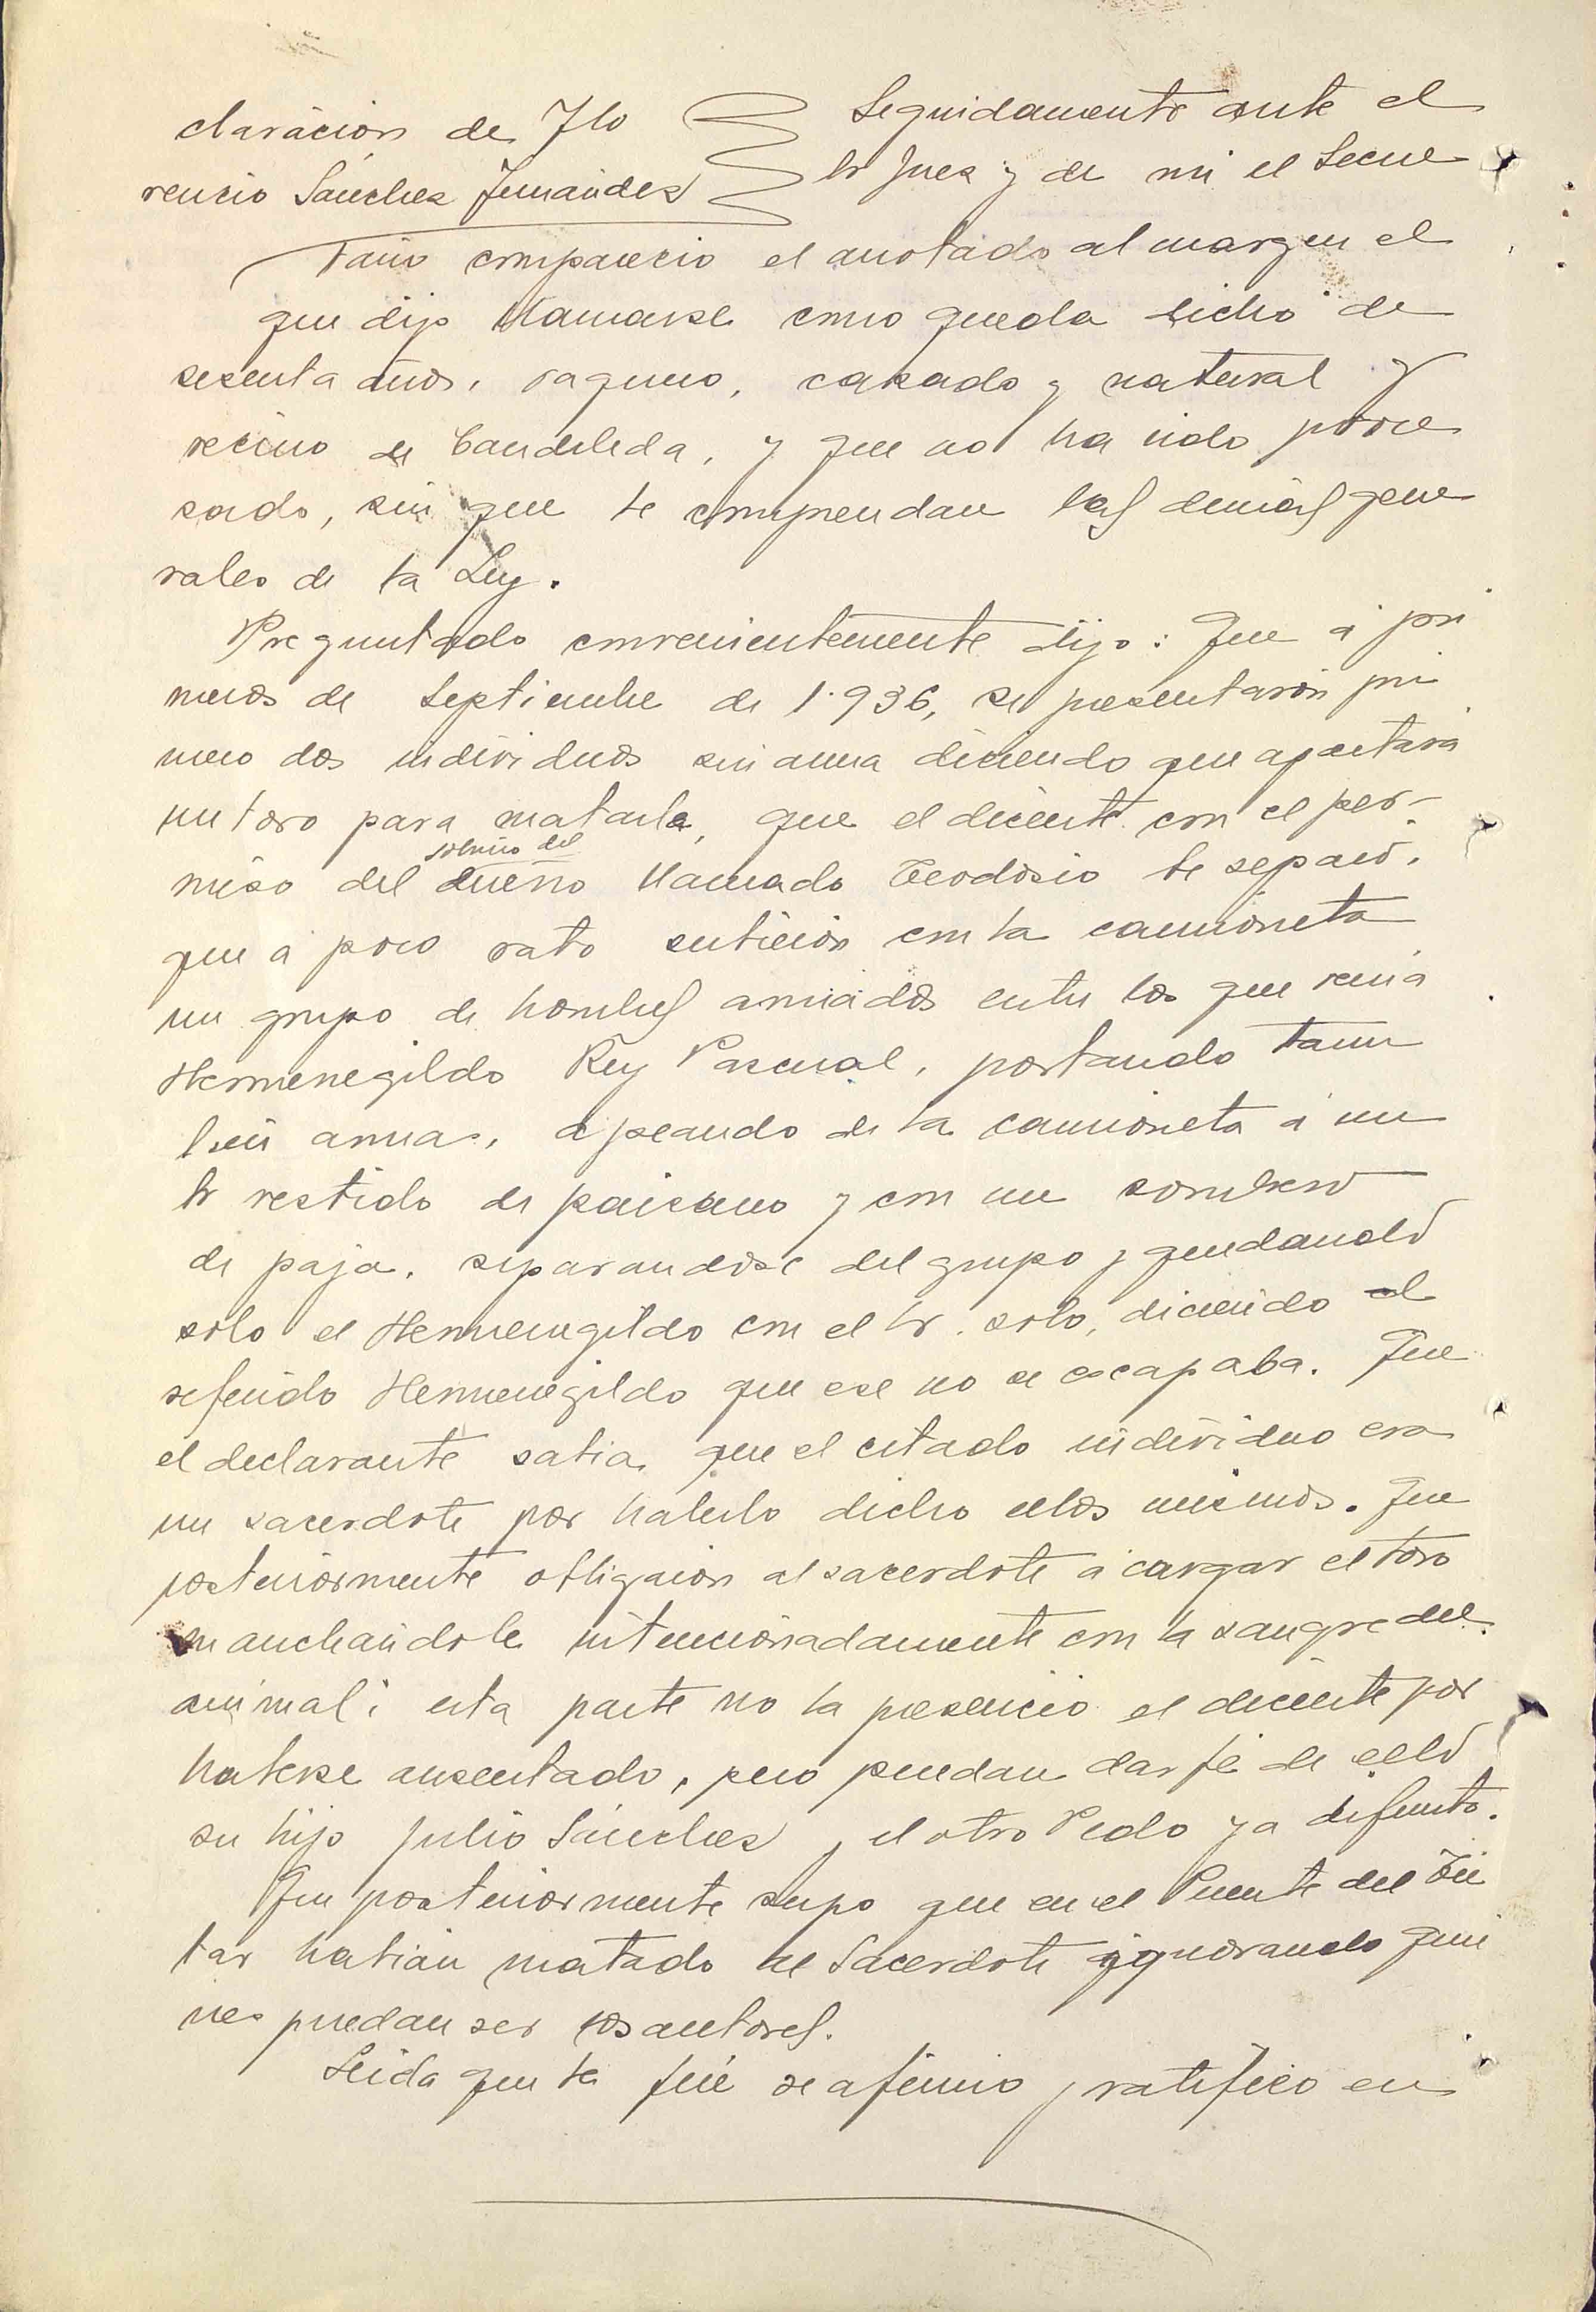 claración de Flo
rencio Sánchez Fernández
Seguidamente ante el
Sr Juez y de mi el Secre
tario compareció el anotado al margen el
que dijo llamarse como queda dicho de
sesenta años, vaquero, casado y natural y
vecino de Candeleda, y que no ha sido proce
sado, sin que le comprendan las demás gene
rales de la Ley.
Preguntado convenientemente dijo: Que á pri
meros de Septiembre de 1.936, se presentaron pri
mero dos individuos sin arma diciendo que apartara
un toro para matarle, que el diciente con el per-
sobrino del
miso del dueño llamado Teodosio le separó,
que á poco rato subieron con la camioneta
un grupo de hombres armados entre los que venia
Hermenegildo Rey Pascual, portando tam
bien armas, apeando de la camioneta á un
Sr vestido de paisano y con un sombrero
de paja, separandose del grupo y quedando
solo el Hermenegildo con el Sr. solo, diciendo el
referido Hermenegildo que ese no se escapaba. Que
el declarante sabia que el citado individuo era
un sacerdote por haberlo dicho ellos mismos. Que
posteriormente obligaron al sacerdote á cargar el toro
manchandole intencionadamente con la sangre del
animal; esta parte no la presenció el diciente por
haberse ausentado, pero puedan dar fé de ello
su hijo Julio Sánchez y el otro Pedro ya difunto.
Que posteriormente supo que en el Puente del Tie
tar habian matado al Sacerdote ignorando quie
nes puedan ser los autores.
Leida que le fué se afirmó y ratificó en